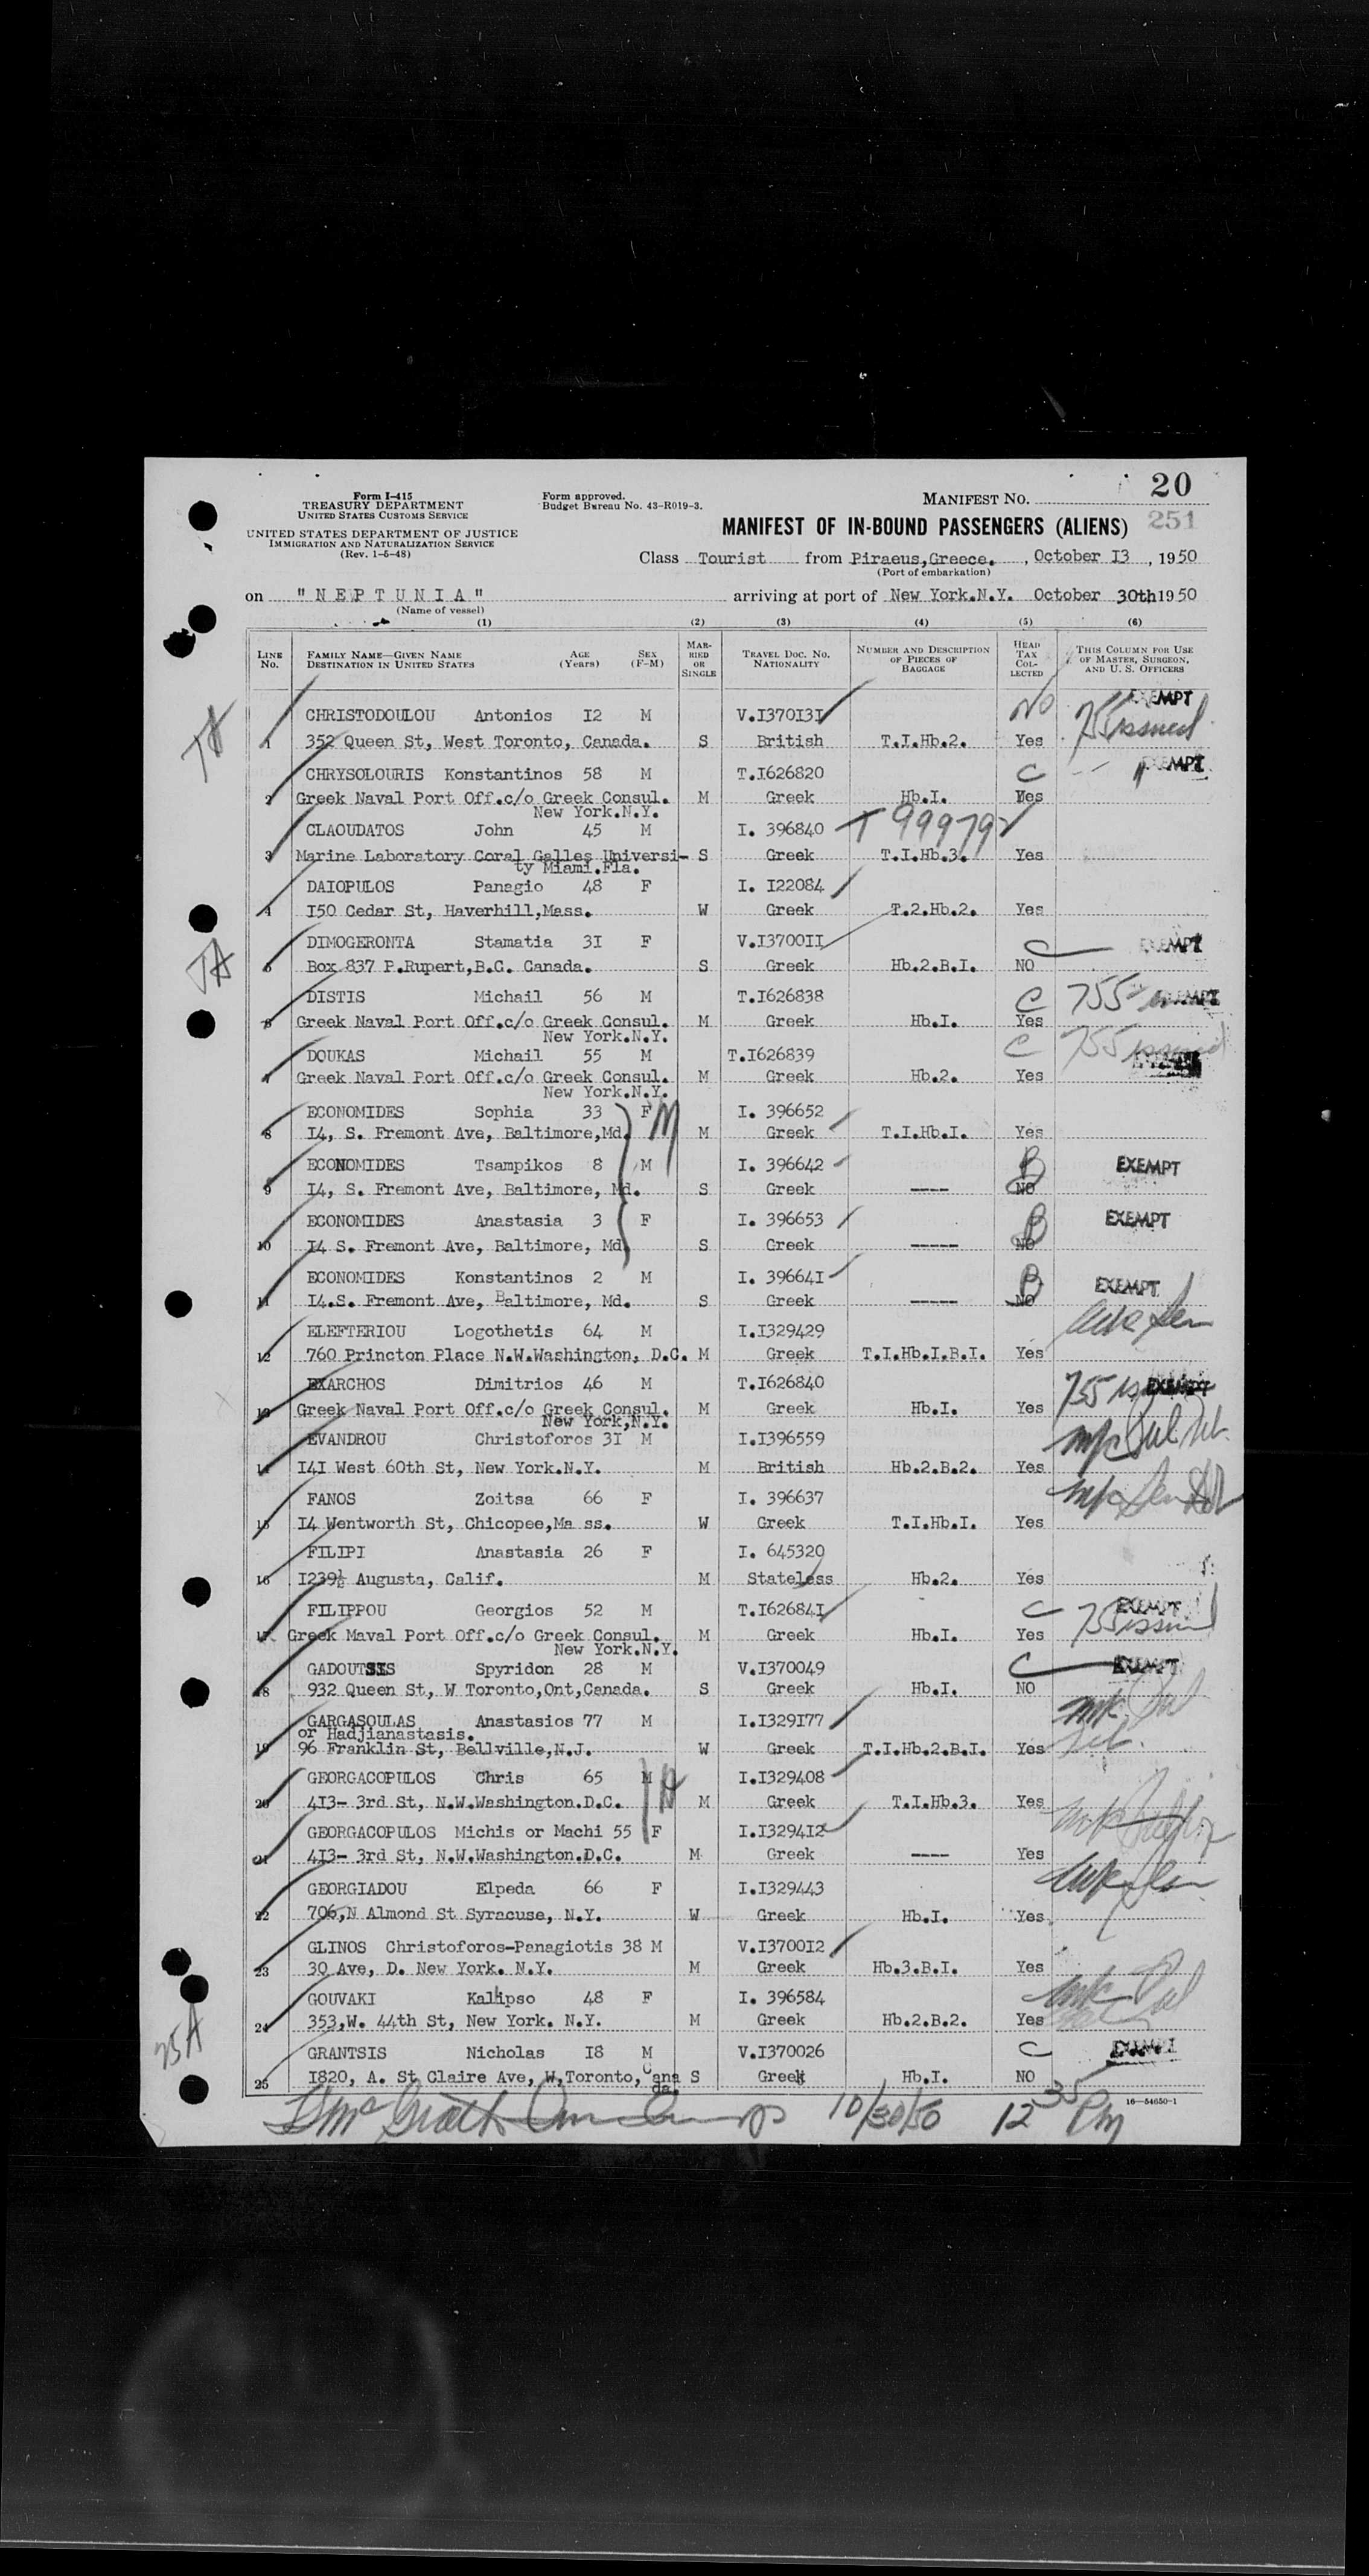 20
Form I-415
TREASURY DEPARTMENT
UNITED STATES CUSTOMS SERVICE
Form approved.
Budget Bureau No. 43-R019-3.
MANIFEST NO.
UNITED STATES DEPARTMENT OF JUSTICE
IMMIGRATION AND NATURALIZATION SERVICE
(Rev. 1-5-48)
MANIFEST OF IN-BOUND PASSENGERS (ALIENS) 251
Class Tourist from Piraeus,Greece. , October I3 , 1950
(Port of embarkation)
on "NEPTUNIA" arriving at port of New York.N.Y. October 30th 1950
(Name of vessel)
(1) (2) (3) (4) (5) (6)
LINE No. FAMILY NAME—GIVEN NAME DESTINATION IN UNITED STATES AGE (Years) SEX (F-M) MARRIED OR SINGLE TRAVEL DOC. NO. NATIONALITY NUMBER AND DESCRIPTION OF PIECES OF BAGGAGE HEAD TAX COLLECTED THIS COLUMN FOR USE OF MASTER, SURGEON, AND U. S. OFFICERS
CHRISTODOULOU Antonios I2 M V.I370I3I NO EXEMPT
1 352 Queen St, West Toronto, Canada. S British T.I.Hb.2. Yes 755 issued
CHRYSOLOURIS Konstantinos 58 M T.I626820 C EXEMPT
2 Greek Naval Port Off.c/o Greek Consul. M Greek Hb.I. Yes
New York.N.Y.
CLAOUDATOS John 45 M I. 396840 T 999792
3 Marine Laboratory Coral Galles Universi- S Greek T.I.Hb.3. Yes
ty Miami.Fla.
DAIOPULOS Panagio 48 F I. I22084
4 I50 Cedar St, Haverhill,Mass. W Greek T.2.Hb.2. Yes
DIMOGERONTA Stamatia 3I F V.I3700II C EXEMPT
5 Box 837 P.Rupert,B.C. Canada. S Greek Hb.2.B.I. NO
DISTIS Michail 56 M T.I626838 C 755 EXEMPT
6 Greek Naval Port Off.c/o Greek Consul. M Greek Hb.I. Yes
New York.N.Y.
DOUKAS Michail 55 M T.I626839 C 755 issued
7 Greek Naval Port Off.c/o Greek Consul. M Greek Hb.2. Yes
New York.N.Y.
ECONOMIDES Sophia 33 F M I. 396652
8 I4, S. Fremont Ave, Baltimore,Md. M Greek T.I.Hb.I. Yes
ECONOMIDES Tsampikos 8 M I. 396642 B EXEMPT
9 I4, S. Fremont Ave, Baltimore, Md. S Greek ---- NO
ECONOMIDES Anastasia 3 F I. 396653 B EXEMPT
10 I4 S. Fremont Ave, Baltimore, Md. S Greek ----- NO
ECONOMIDES Konstantinos 2 M I. 39664I B EXEMPT
11 I4.S. Fremont Ave, Baltimore, Md. S Greek ----- NO
ELEFTERIOU Logothetis 64 M I.I329429
12 760 Princton Place N.W.Washington, D.C. M Greek T.I.Hb.I.B.I. Yes
EXARCHOS Dimitrios 46 M T.I626840 755 EXEMPT
13 Greek Naval Port Off.c/o Greek Consul. M Greek Hb.I. Yes
New York,N.Y.
EVANDROU Christoforos 3I M I.I396559
14 I4I West 60th St, New York.N.Y. M British Hb.2.B.2. Yes
FANOS Zoitsa 66 F I. 396637
15 I4 Wentworth St, Chicopee,Ma ss. W Greek T.I.Hb.I. Yes
FILIPI Anastasia 26 F I. 645320
16 I239½ Augusta, Calif. M Stateless Hb.2. Yes
FILIPPOU Georgios 52 M T.I62684I C EXEMPT
17 Greek Maval Port Off.c/o Greek Consul. M Greek Hb.I. Yes 755 issued
New York.N.Y.
GADOUTSIS Spyridon 28 M V.I370049 C EXEMPT
18 932 Queen St, W Toronto,Ont,Canada. S Greek Hb.I. NO
GARGASOULAS Anastasios 77 M I.I329I77
or Hadjianastasis.
19 96 Franklin St, Bellville,N.J. W Greek T.I.Hb.2.B.I. Yes
GEORGACOPULOS Chris 65 M I.I329408
20 4I3- 3rd St, N.W.Washington.D.C. M Greek T.I.Hb.3. Yes
GEORGACOPULOS Michis or Machi 55 F I.I3294I2
21 4I3- 3rd St, N.W.Washington.D.C. M Greek ---- Yes
GEORGIADOU Elpeda 66 F I.I329443
22 706,N Almond St Syracuse, N.Y. W Greek Hb.I. Yes
GLINOS Christoforos-Panagiotis 38 M V.I3700I2
23 30 Ave, D. New York. N.Y. M Greek Hb.3.B.I. Yes
GOUVAKI Kalipso 48 F I. 396584
24 353,W. 44th St, New York. N.Y. M Greek Hb.2.B.2. Yes
GRANTSIS Nicholas I8 M V.I370026 C EXEMPT
25 I820, A. St Claire Ave, W,Toronto,Cana S Greek Hb.I. NO
da.
10/30/50 12 35 PM
16—54650-1